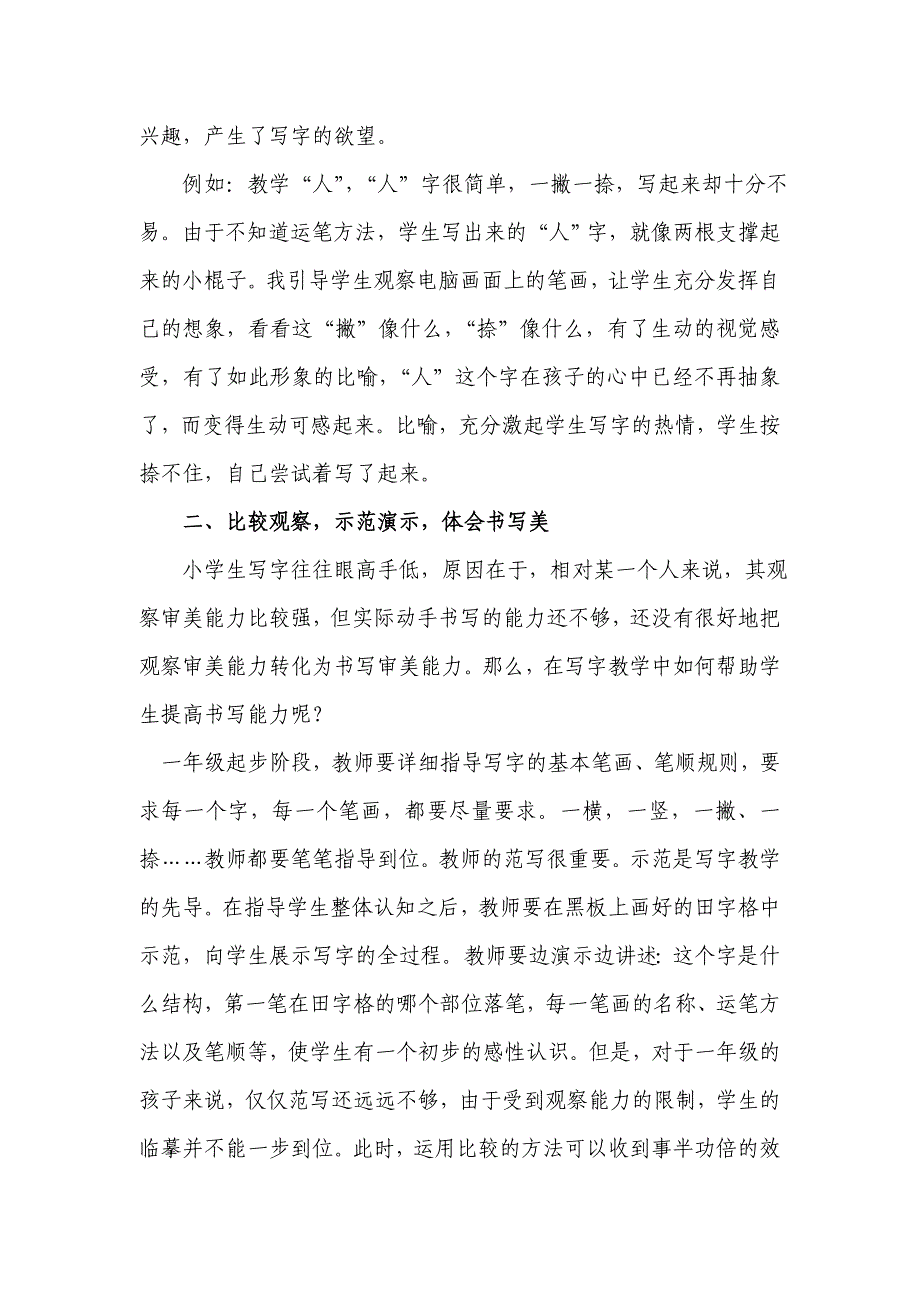 兴趣，产生了写字的欲望。
例如：教学“人”，“人”字很简单，一撇一捺，写起来却十分不
易。由于不知道运笔方法，学生写出来的“人”字，就像两根支撑起
来的小棍子。我引导学生观察电脑画面上的笔画，让学生充分发挥自
己的想象，看看这“撇”像什么，“捺”像什么，有了生动的视觉感
受，有了如此形象的比喻，“人”这个字在孩子的心中已经不再抽象
了，而变得生动可感起来。比喻，充分激起学生写字的热情，学生按
捺不住，自己尝试着写了起来。
二、比较观察，示范演示，体会书写美
小学生写字往往眼高手低，原因在于，相对某一个人来说，其观
察审美能力比较强，但实际动手书写的能力还不够，还没有很好地把
观察审美能力转化为书写审美能力。那么，在写字教学中如何帮助学
生提高书写能力呢？
一年级起步阶段，教师要详细指导写字的基本笔画、笔顺规则，要
求每一个字，每一个笔画，都要尽量要求。一横，一竖，一撇、一
捺……教师都要笔笔指导到位。教师的范写很重要。示范是写字教学
的先导。在指导学生整体认知之后，教师要在黑板上画好的田字格中
示范，向学生展示写字的全过程。教师要边演示边讲述：这个字是什
么结构，第一笔在田字格的哪个部位落笔，每一笔画的名称、运笔方
法以及笔顺等，使学生有一个初步的感性认识。但是，对于一年级的
孩子来说，仅仅范写还远远不够，由于受到观察能力的限制，学生的
临摹并不能一步到位。此时，运用比较的方法可以收到事半功倍的效